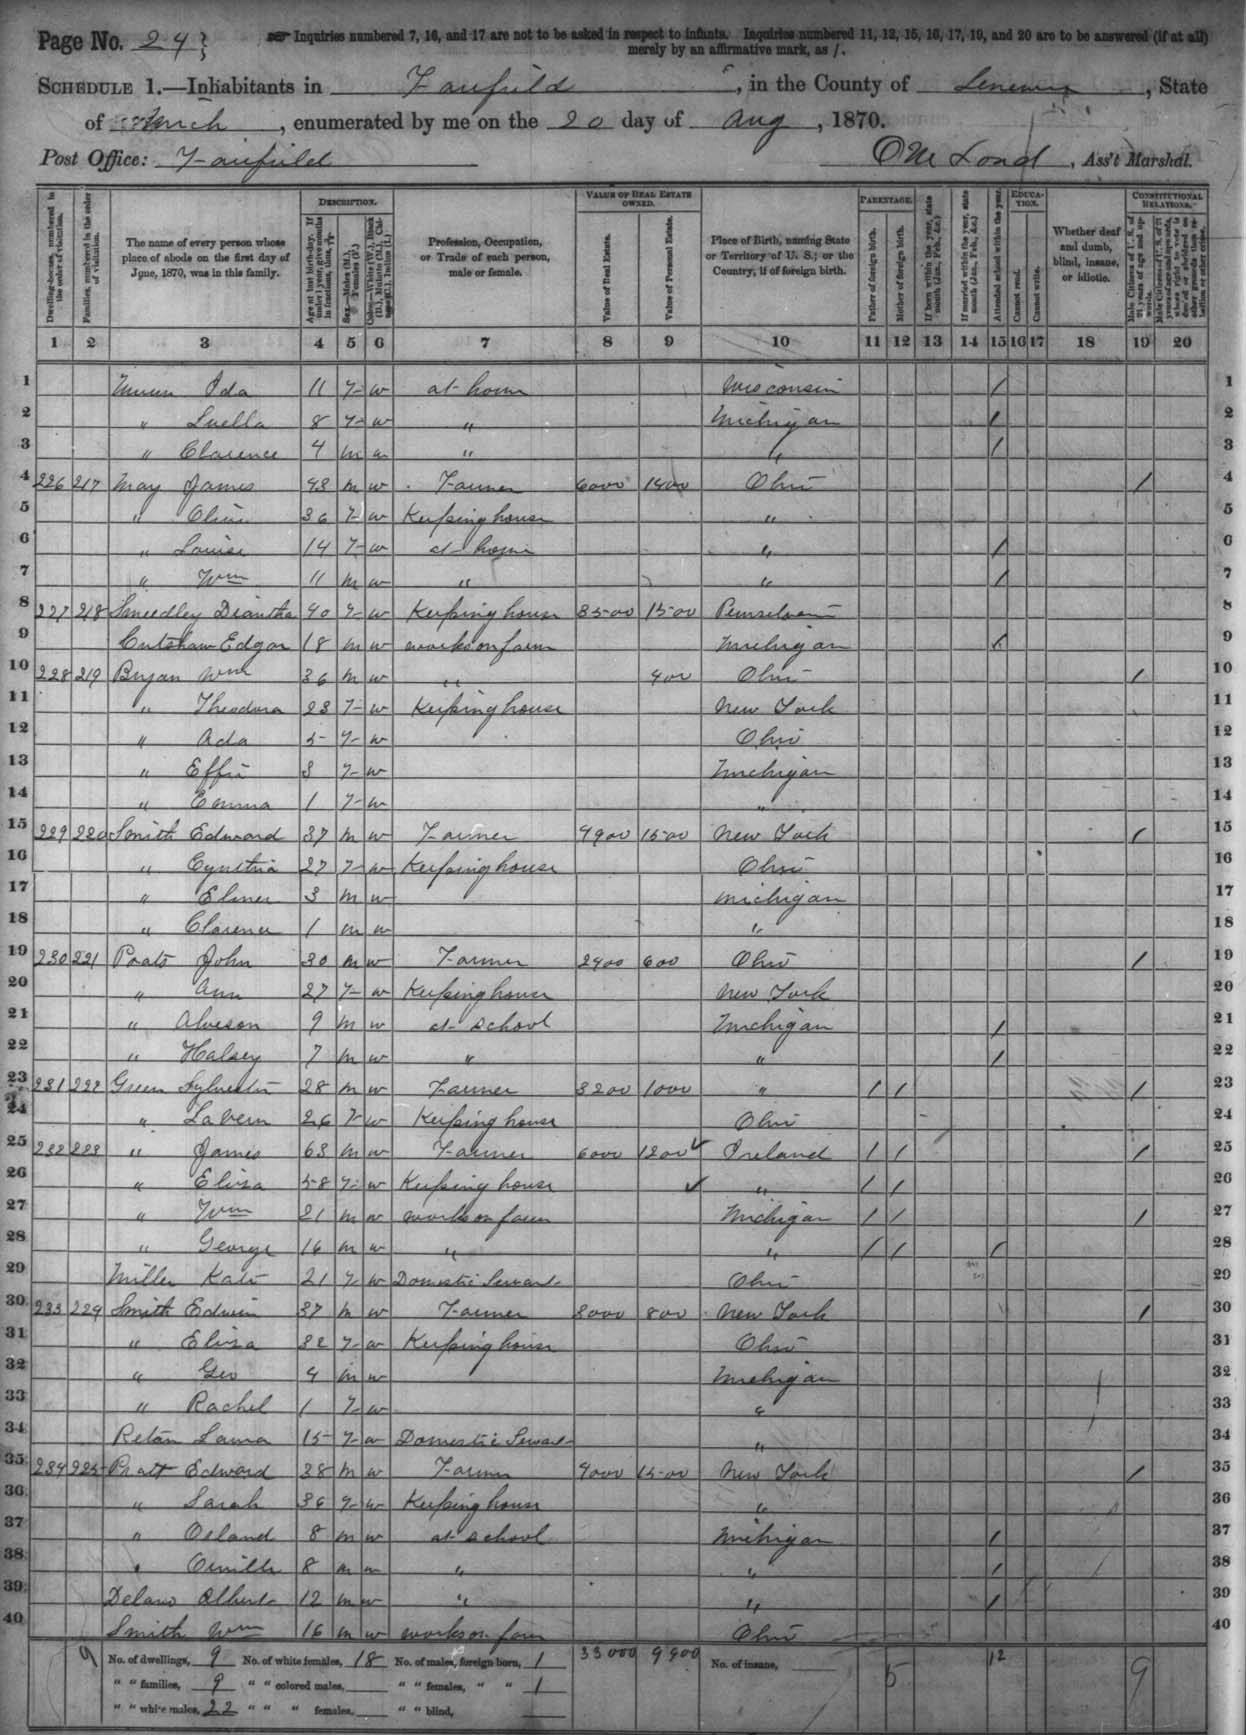 Page No. 24
Inquiries numbered 7, 16, and 17 are not to be asked in respect to infants. Inquiries numbered 11, 12, 15, 16, 17, 19, and 20 are to be answered (if at all)
merely by an affirmative mark, as /.
SCHEDULE 1.—Inhabitants in Fairfield, in the County of Lenawee, State
of Mich, enumerated by me on the 20 day of Aug, 1870.
Post Office: Fairfield
Ass't Marshal.
Dwelling-houses, numbered in the order of visitation.
Families, numbered in the order of visitation.
The name of every person whose place of abode on the first day of June, 1870, was in this family.
DESCRIPTION.
Age at last birth-day. If under 1 year, give months in fractions, thus,
Sex.—Males (M.), Females (F.)
Color.—White (W.), Black (B.), Mulatto (M.), Chinese (C.), Indian (I.)
Profession, Occupation, or Trade of each person, male or female.
VALUE OF REAL ESTATE OWNED.
Value of Real Estate.
Value of Personal Estate.
Place of Birth, naming State or Territory of U. S.; or the Country, if of foreign birth.
PARENTAGE.
Father of foreign birth.
Mother of foreign birth.
If born within the year, state month (Jan., Feb., &c.)
If married within the year, state month (Jan., Feb., &c.)
Attended school within the year.
EDUCATION.
Cannot read.
Cannot write.
Whether deaf and dumb, blind, insane, or idiotic.
CONSTITUTIONAL RELATIONS.
Male Citizens of U. S. of 21 years of age and upwards.
Male Citizens of U. S. of 21 years of age and upwards, whose right to vote is denied or abridged on other grounds than rebellion or other crime.
1 2 3 4 5 6 7 8 9 10 11 12 13 14 15 16 17 18 19 20
1 Ida 11 F w at home Wisconsin / 1
2 " Luella 8 F w " Michigan / 2
3 " Clarence 4 m w " " / 3
4 226 217 May James 43 m w Farmer 6000 1400 Ohio / 4
5 " Olive 36 F w Keeping house " 5
6 " Louise 14 F w at home " / 6
7 " Wm 11 m w " " / 7
8 227 218 Smeedley Diantha 40 F w Keeping house 3500 1500 8
9 Cutshaw Edgar 18 m w works on farm Michigan / 9
10 228 219 Bryan Wm 36 m w " 400 Ohio / 10
11 " Theodora 23 F w Keeping house New York 11
12 " Ada 5 F w Ohio 12
13 " Effie 3 F w Michigan 13
14 " Emma 1 F w " 14
15 229 220 Smith Edward 37 m w Farmer 1500 New York / 15
16 " Cynthia 27 F w Keeping house Ohio 16
17 " Elmer 3 m w Michigan 17
18 " Clarence 1 m w " 18
19 230 221 John 30 m w Farmer 2400 600 Ohio / 19
20 " Ann 27 F w Keeping house New York 20
21 " Alveson 9 m w at school Michigan / 21
22 " Halsey 7 m w " " / 22
23 231 222 Green Sylvester 28 m w Farmer 3200 1000 " / / / 23
24 " Lavern 26 F w Keeping house Ohio 24
25 232 223 " James 63 m w Farmer 6000 1200 ✓ Ireland / / / 25
26 " Eliza 58 F w Keeping house ✓ " / / 26
27 " Wm 21 m w works on farm Michigan / / / 27
28 " George 16 m w " " / / / 28
29 Miller Kate 21 F w Domestic Servant Ohio 29
30 233 224 Smith Edwin 37 m w Farmer 800 New York / 30
31 " Eliza 32 F w Keeping house Ohio 31
32 " Geo 4 m w Michigan 32
33 " Rachel 1 F w " 33
34 Retan 15 F w Domestic Servant " 34
35 234 225 Pratt Edward 38 m w Farmer 4000 1500 New York / 35
36 " Sarah 36 F w Keeping house " 36
37 " Orland 8 m w at school Michigan / 37
38 " Orville 8 m w " " / 38
39 Delano Albert 12 m w " " / 39
40 Smith Wm 16 m w works on farm Ohio 40
9 No. of dwellings, 9 No. of white females, 18 No. of males, foreign born, 1 33000 9900 No. of insane, 5 12 9
" " families, 9 " " colored males, " " females, " " 1
" " white males, 22 " " " females, " " blind,